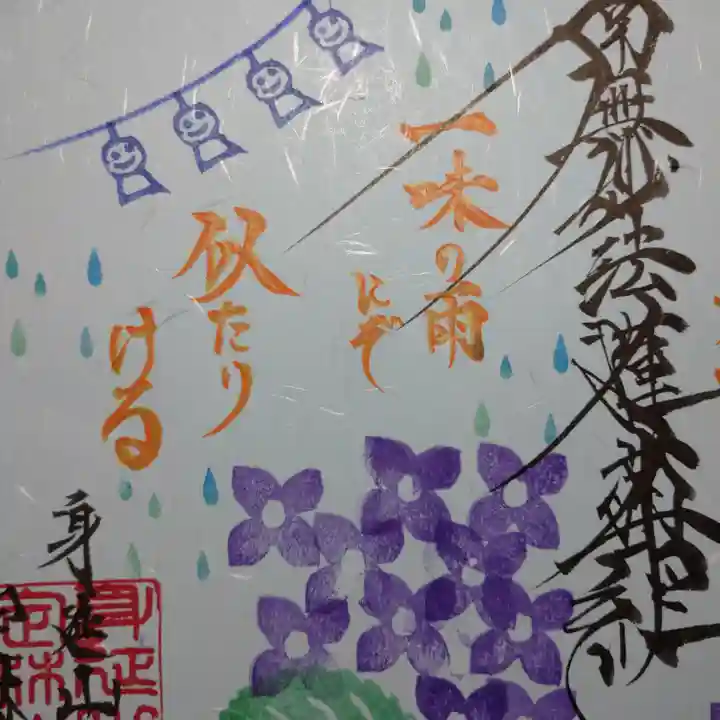 南無妙法蓮華経
一味の雨
にぞ
似たり
ける
身延山